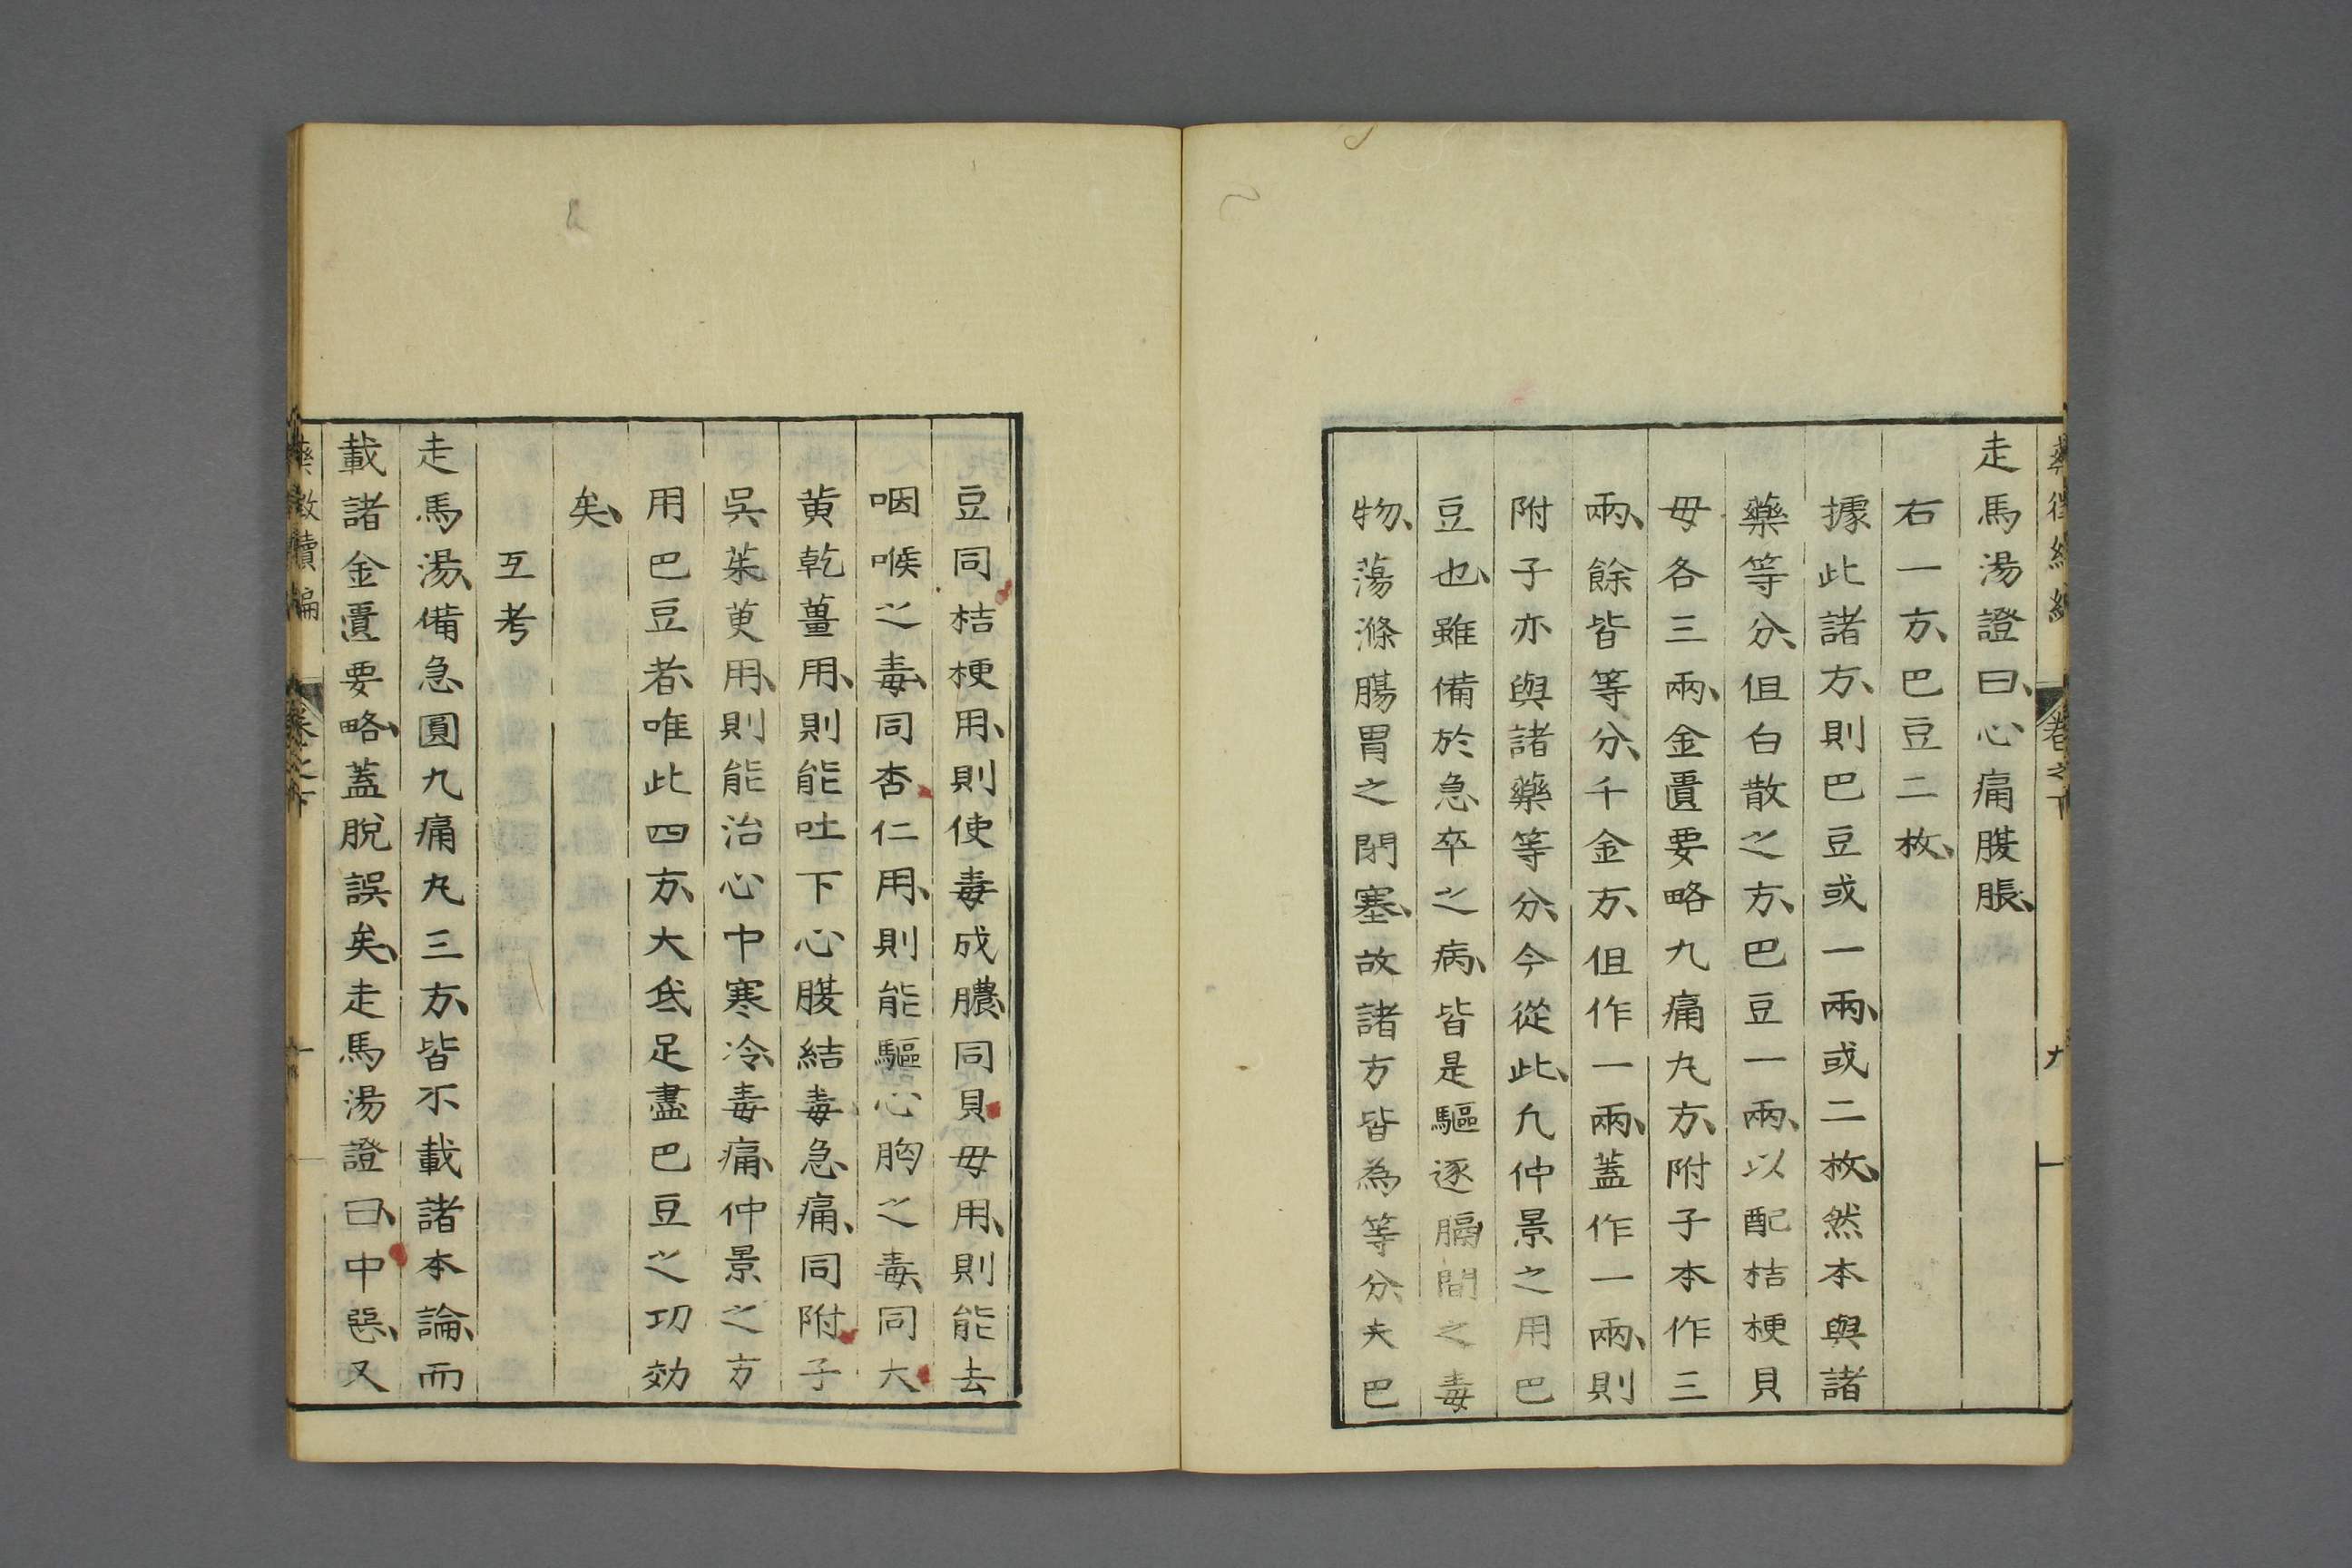 走馬湯證曰、心痛腹脹、
右一方、巴豆二枚、
據此諸方、則巴豆或一兩、或二枚、然本與諸
藥等分、但白散之方、巴豆一兩、以配桔梗貝
母各三兩、金匱要略九痛丸方、附子本作三
兩、餘皆等分、千金方、但作一兩、蓋作一兩、則
附子亦與諸藥等分、今從此、凡仲景之用巴
豆也、雖備於急卒之病、皆是驅逐膈間之毒
物、蕩滌腸胃之閉塞、故諸方皆為等分、夫巴
豆同桔梗用、則使毒成膿、同貝母用、則能去
咽喉之毒、同杏仁用、則能驅心胸之毒、同大
黄乾薑用、則能吐下心腹結毒急痛、同附子
吳茱萸用、則能治心中寒冷毒痛、仲景之方
用巴豆者、唯此四方、大氐足盡巴豆之功効
矣、
互考
走馬湯、備急圓九痛丸三方、皆不載諸本論、而
載諸金匱要略、蓋脫誤矣、走馬湯證曰、中惡、又